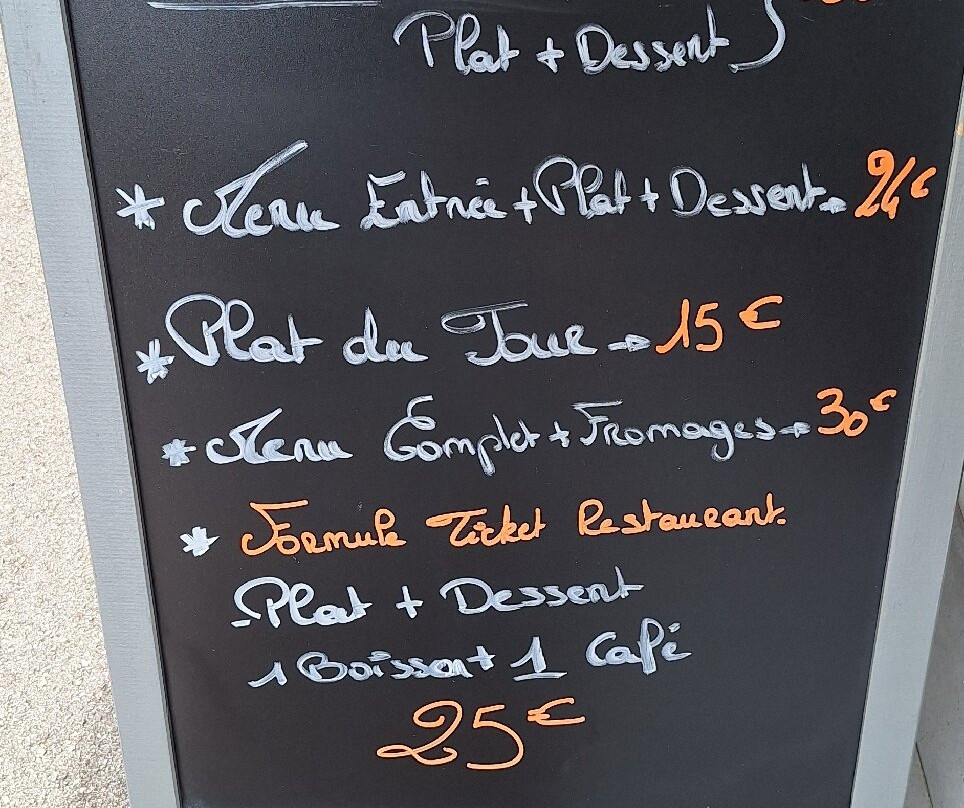 Plat + Dessent }
* Menu Entrée + Plat + Dessert → 24€
* Plat du Jour → 15€
* Menu Complet + Fromages → 30€
* Formule Ticket Restaurant.
- Plat + Dessert
1 Boisson + 1 Café
25€